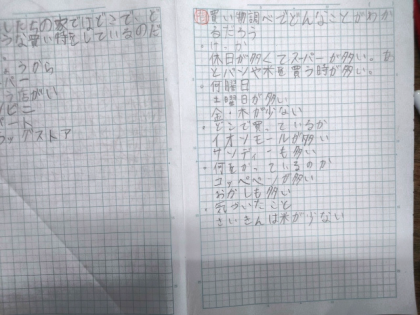 したちの家ではどこで、ど
うな買い物をしているのだ
ょうから
パー
う店がい
ビニ
ート
ラッグストア
買い物調べでどんなことがわか
るだろう
休日が多くてスーパーが多い。あ
とパンや水を買う時が多い。
・何曜日
土曜日が多い
金・木が少ない
・どこで買っているか
イオンモールが多い
サンディーも多い
・何をかっているのか
コッペパンが多い
おかしも多い
・気づいたこと
さいきんは水が少ない